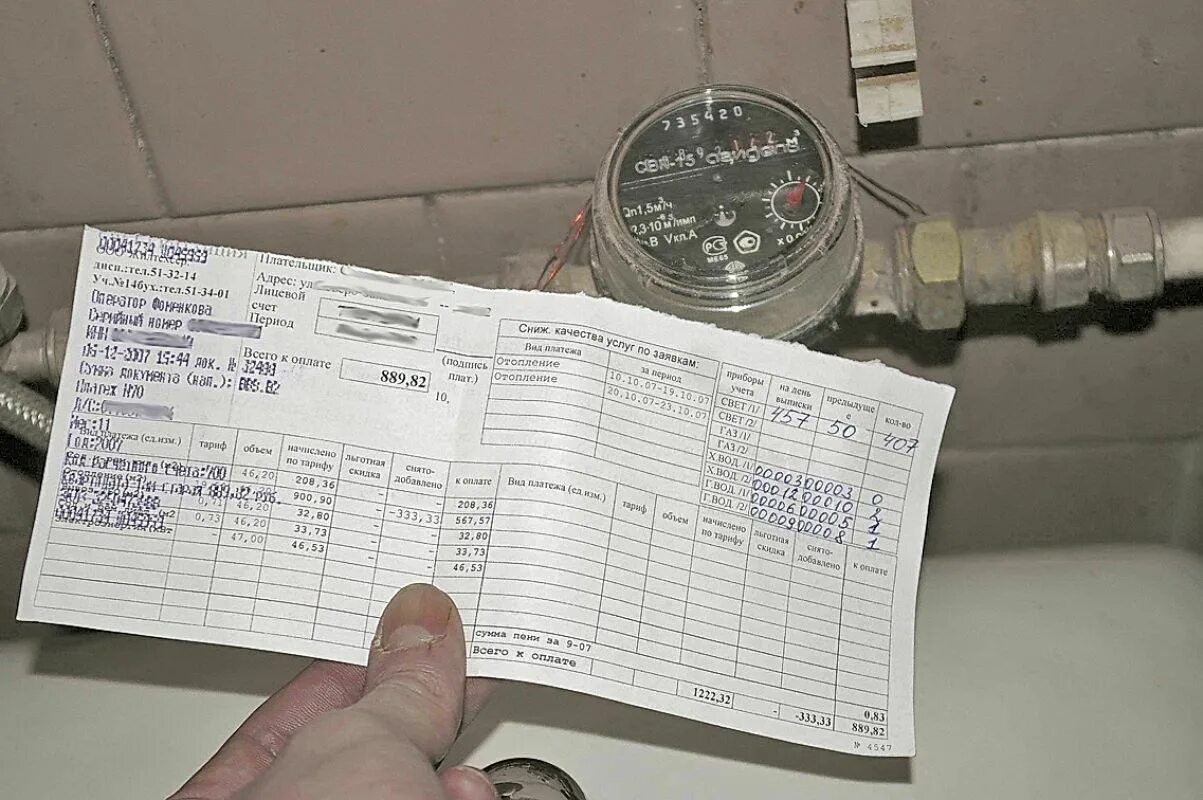 735420
м³
СВК-15
Qn1,5м³/ч
В Vкл.А
МЕ65
дисп.:тел.51-32-14
Уч.№146ух.:тел.51-34-01
Оператор Фомрякова
Серийный номер
ИНН
06-12-2007 15:44 док. №
Сумма документа (нал.):
Платеж №70
Л/С:
Мес:11
Год:2007
Плательщик:
Адрес: ул
Лицевой
счет
Период
Всего к оплате
889,82
(подпись
плат.)
10,
Сниж. качества услуг по заявкам:
Вид платежа за период
Отопление 10.10.07-19.10.07
Отопление 20.10.07-23.10.07
приборы учета на день выписки предыдуще е кол-во
СВЕТ /1/ 457 50 407
СВЕТ /2/
ГАЗ /1/
ГАЗ /2/
Х.ВОД. /1/ 00003 00003 0
Х.ВОД. /2/ 00012 00010 2
Г.ВОД. /1/ 00006 00005 1
Г.ВОД. /2/ 00009 00008 1
Вид платежа (ед.изм.) тариф объем начислено по тарифу льготная скидка снято-добавлено к оплате
46,20 208,36 - - 208,36
46,20 900,90 - -333,33 567,57
0,71 46,20 32,80 - - 32,80
0,73 46,20 33,73 - - 33,73
- 47,00 46,53 - - 46,53
Вид платежа (ед.изм.) тариф объем начислено по тарифу льготная скидка снято-добавлено к оплате
сумма пени за 9-07 0,83
Всего к оплате 1222,32 - -333,33 889,82
№ 4547